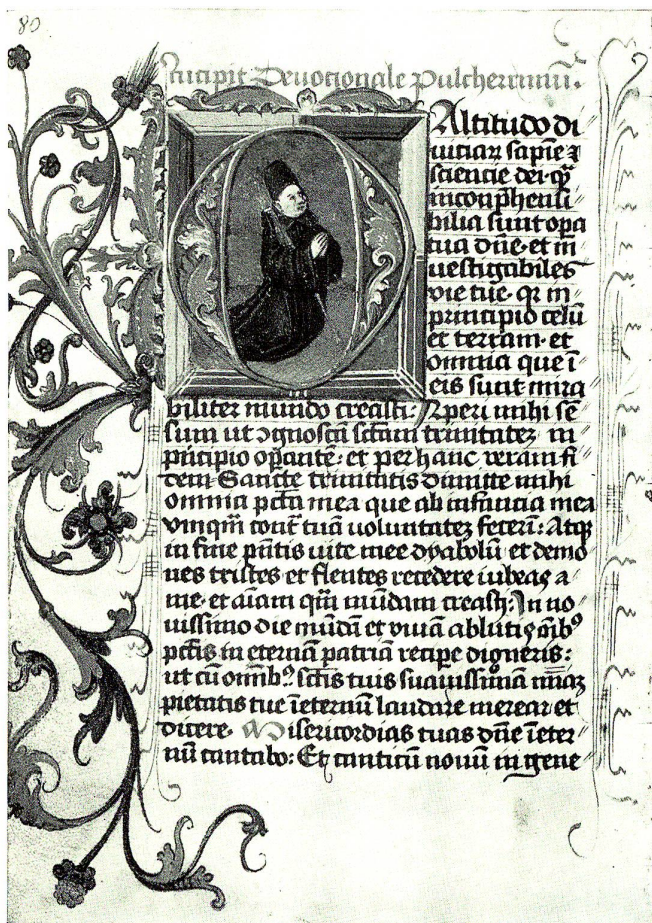 80
Incipit Deuocionale pulcherrimu.
O
Altitudo di
uitiar sapie ⁊
sciencie dei. qȝ
inconphensi
bilia sunt opa
tua dne. et in
uestigabiles
vie tue. qr in
principio celu
et terram. et
omnia que i
eis sunt mira
biliter mundo creasti: Aperi mihi se
sum ut ꝯgnosca sctam trinitatez in
principio opante. et per hanc veram fi
dem Sancte trinitatis dimitte mihi
omnia pcta mea que ab infancia mea
vnqm cont tua uoluntatez feceri: Atqȝ
in fine pntis uite mee dyabolu et demo
nes tristes et flentes recedere iubeas a
me. et aiam qm mudam creasti: In no
uissimo die muda et viua ablutis omibꝰ
pctis in eternam patriam recipe digneris:
ut cu omnibꝰ sctis tuis suauissima miaz
pietatis tue ieternu laudare merear et
dicere. Misericordias tuas dne ieter
nu cantabo: Et canticu nouu in gene